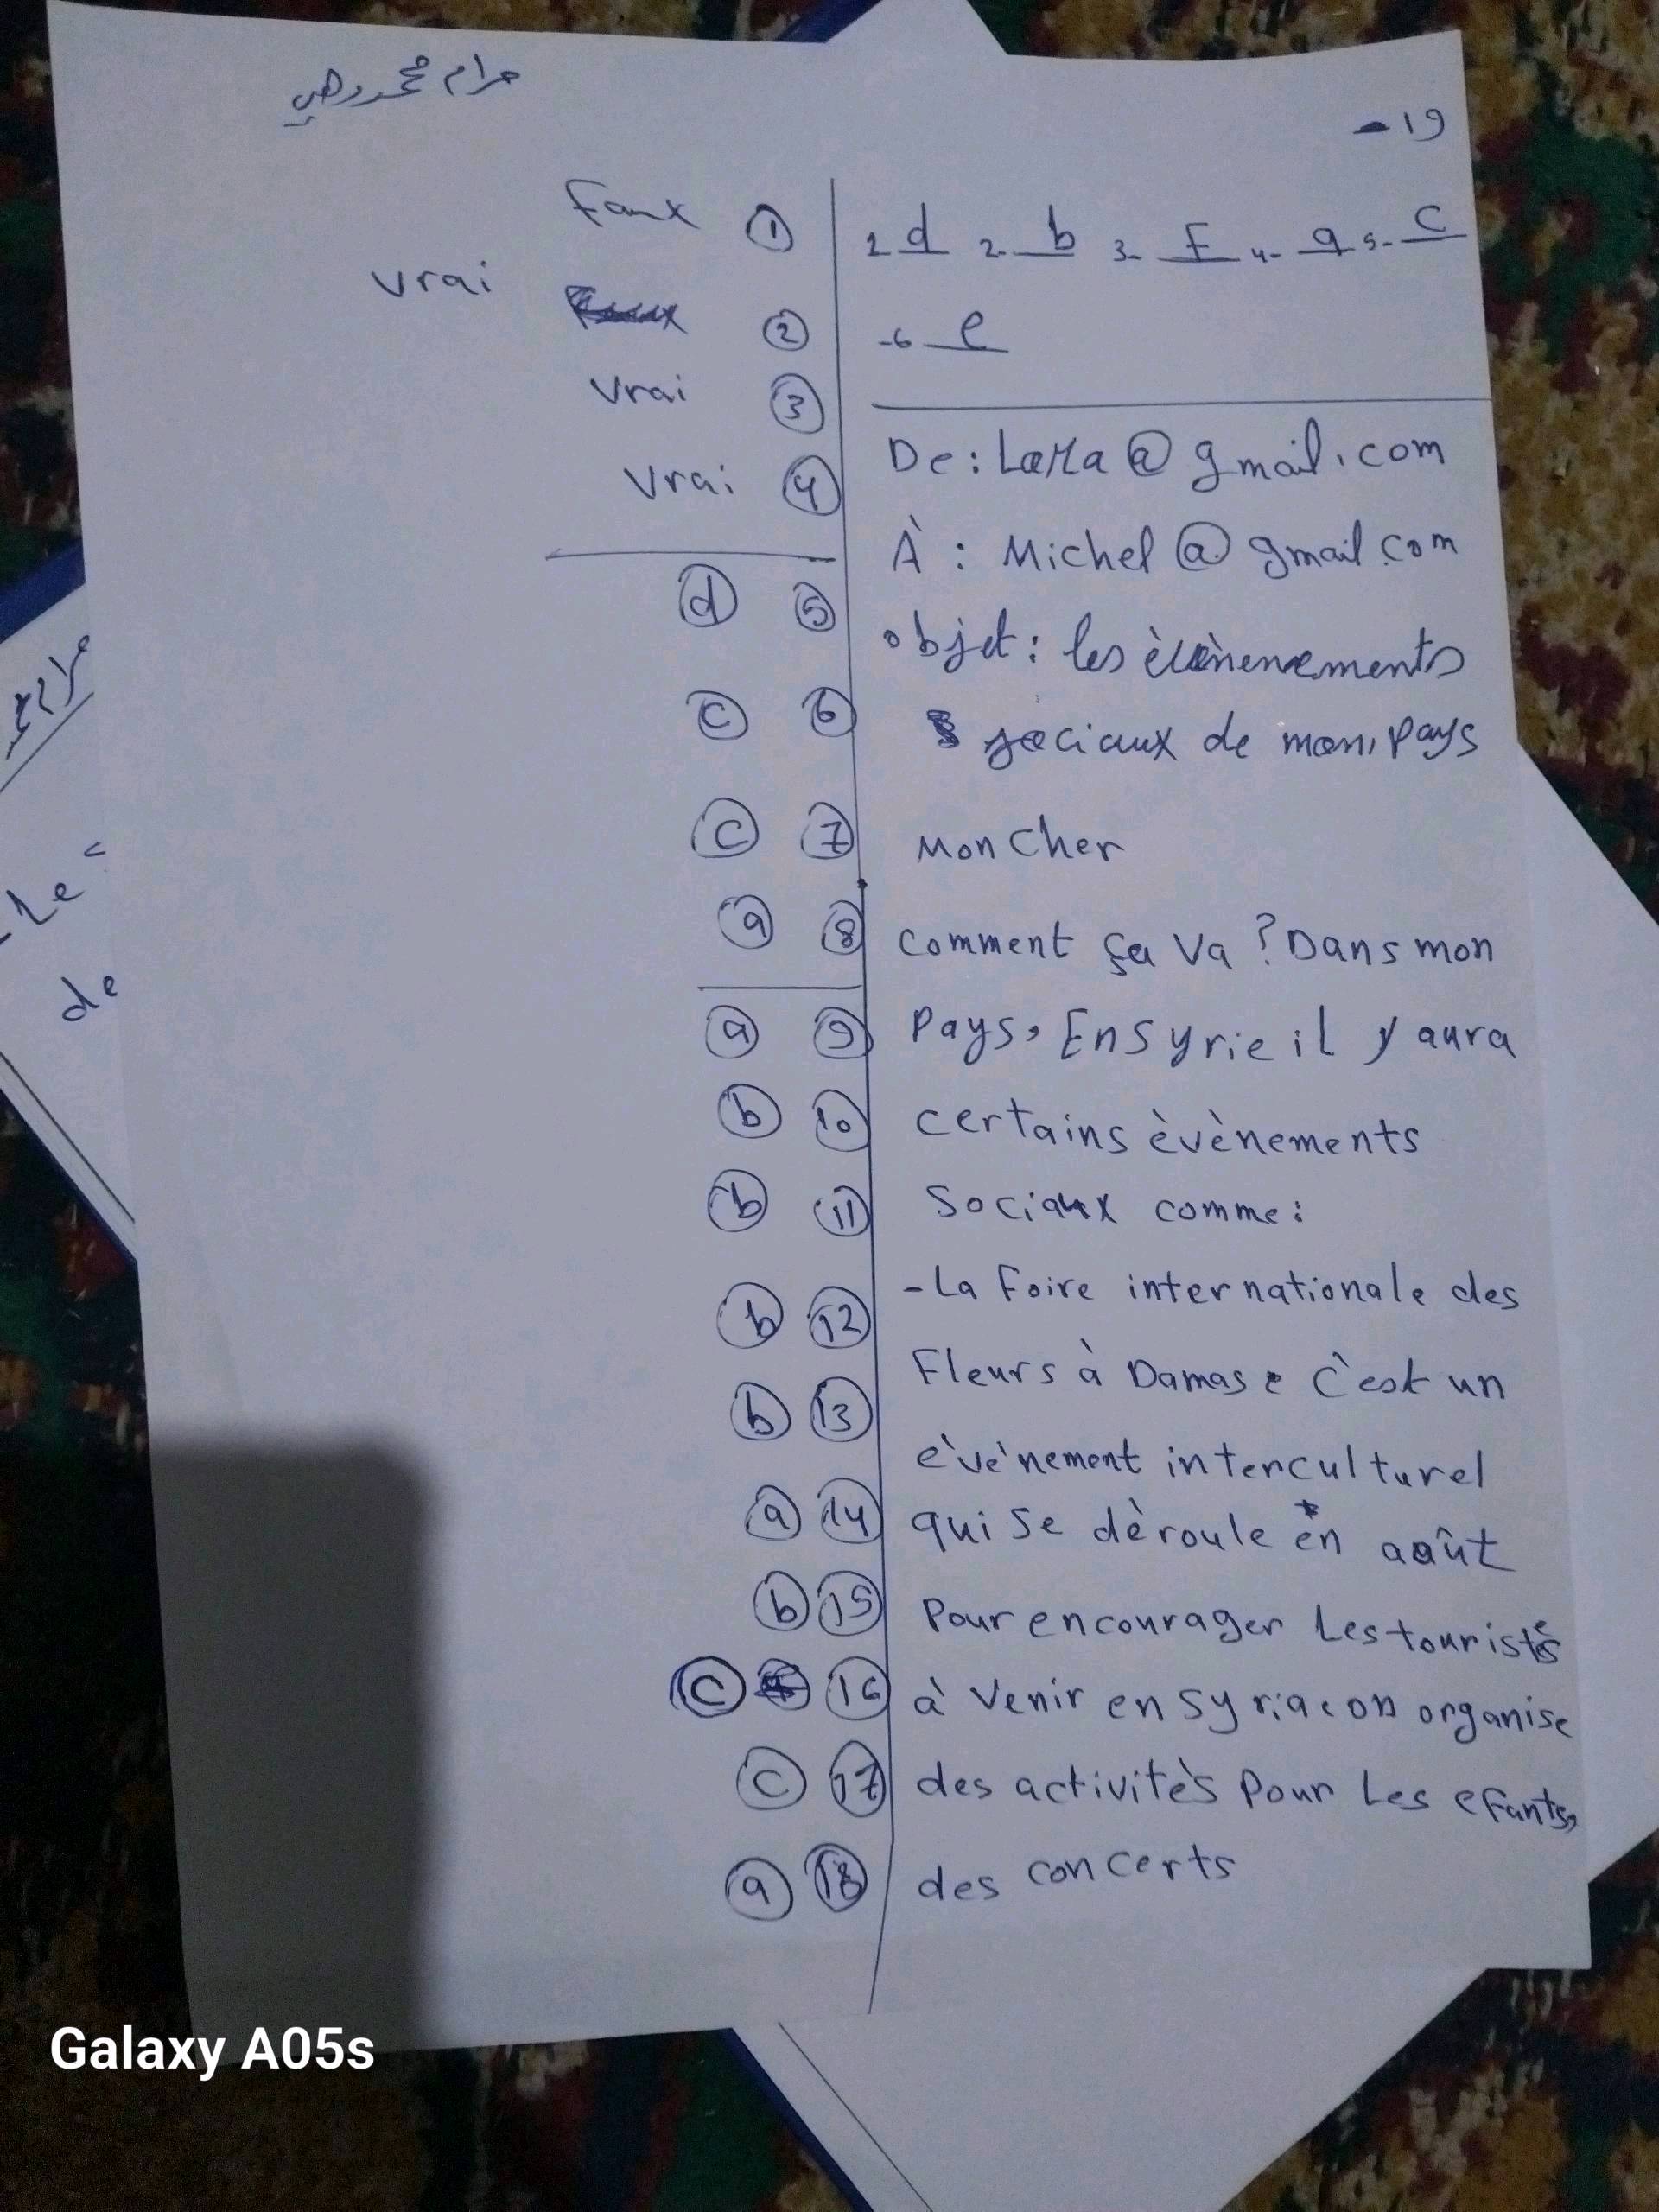 مرام محمد وهبي
Faux ①
vrai ②
vrai ③
vrai ④
ⓓ ⑤
ⓒ ⑥
ⓒ ⑦
ⓐ ⑧
ⓐ ⑨
ⓑ ⑩
ⓑ ⑪
ⓑ ⑫
ⓑ ⑬
ⓐ ⑭
ⓑ ⑮
ⓒ ⑯
ⓒ ⑰
ⓐ ⑱
-19
1 d 2- b 3- F 4- a 5- C
-6 e
De: Lara@gmail.com
À : Michel@gmail.com
objet: les
sociaux de mon pays
Mon Cher
comment ça va ? Dans mon
Pays, En Syrie il y aura
certains èvènements
Sociaux comme:
-La Foire internationale des
Fleurs à Damas: C'est un
èvènement interculturel
qui se dèroule en août
Pour encourager Les touristes
à venir en Syria: on organise
des activitès Pour Les efants,
des concerts
مرام
-Le
de
Galaxy A05s